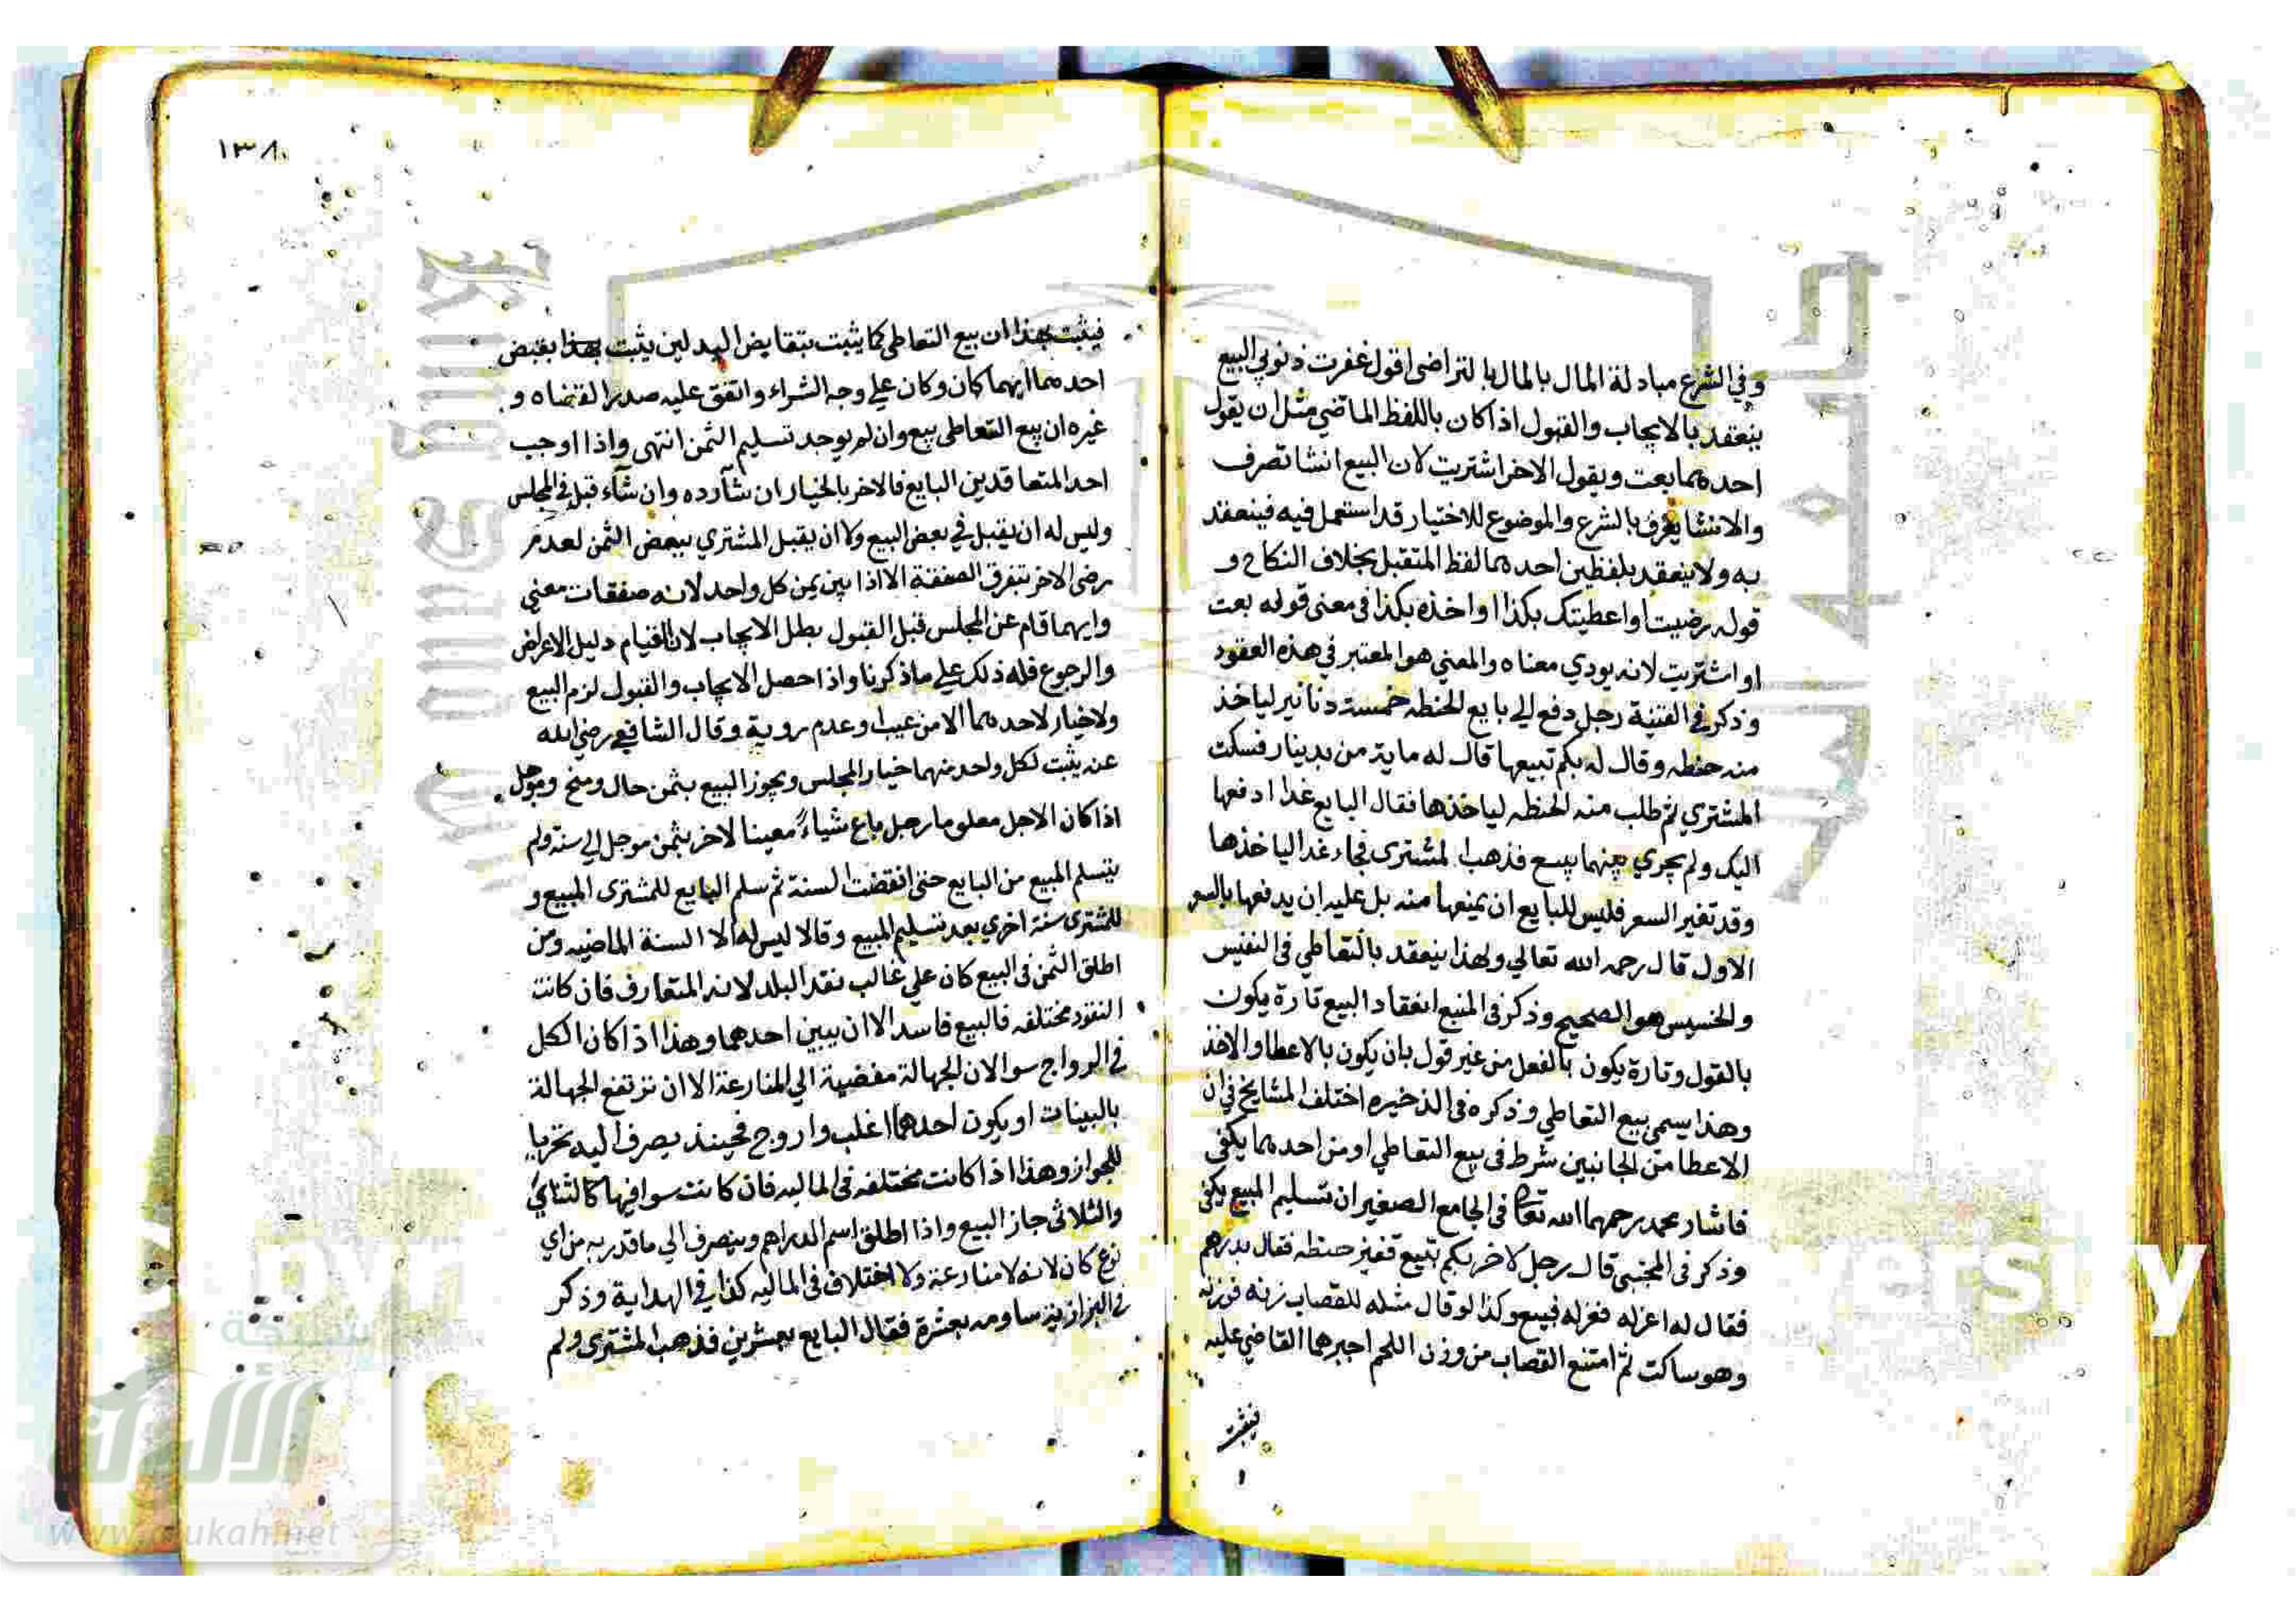 وفي الشرع مبادلة المال بالمال بالتراضي اقول غفرت ذنوبي البيع
ينعقد بالايجاب والقبول اذا كان باللفظ الماضي مثل ان يقول
احدهما بعت ويقول الاخر اشتريت لان البيع انشا تصرف
والانشا يعرف بالشرع والموضوع للاختيار قد استعمل فيه فينعقد
به ولا ينعقد بلفظين احدهما لفظ المتقبل بخلاف النكاح و
قوله رضيت او اعطيتك بكذا او اخذه بكذا في معنى قوله بعت
او اشتريت لانه يودي معناه والمعني هو المعتبر في هذه العقود
وذكر في القنية رجل دفع الي بايع الحنطه خمسة دنانير لياخذ
منه حنطه وقال له بكم تبيعها قال له ماية من بدينار فسكت
المشتري ثم طلب منه الحنطه لياخذها فقال البايع غدا ادفعها
اليك ولم يجري بينهما بيع فذهب المشترى فجاء غدا لياخذها
وقد تغير السعر فليس للبايع ان يمنعها منه بل عليه ان يدفعها بالسعر
الاول قال رحمه الله تعالي ولهذا ينعقد بالتعاطي في النفيس
والخسيس هو الصحيح وذكر في المنبع انعقاد البيع تارة يكون
بالقول وتارة يكون بالفعل من غير قول بان يكون بالاعطا والاخذ
وهذا يسمى بيع التعاطي وذكره في الذخيره اختلف المشايخ في ان
الاعطا من الجانبين شرط في بيع التعاطي او من احدهما يكفى
فاشار محمد رحمهما الله تعالى في الجامع الصغير ان تسليم المبيع يكفى
وذكر في المجتبى قال رجل لاخر بكم تبيع قفيز حنطه فقال بدرهم
فقال له اعزله فعزله فبيع وكذا لو قال مثله للقصاب زنه فوزنه
وهو ساكت ثم امتنع القصاب من وزن اللحم اجبرهما القاضي عليه
فيثبت
١٣٨
فيثبت بهذا ان بيع التعاطي كما يثبت بتقابض البدلين يثبت بهذا بقبض
احدهما ايهما كان وكان علي وجه الشراء واتفق عليه صدر القضاه و
غيره ان بيع التعاطى بيع وان لم يوجد تسليم الثمن انتهى واذا اوجب
احد المتعاقدين البايع فالاخر بالخيار ان شآ رده وان شآء قبل في المجلس
وليس له ان يقبل في بعض البيع ولا ان يقبل المشتري ببعض الثمن لعدم
رضى الاخر بتفرق الصفقة الا اذا بين ثمن كل واحد لانه صفقات معني
وايهما قام عن المجلس قبل القبول بطل الايجاب لان القيام دليل الاعراض
والرجوع فله ذلك علي ماذكرنا واذا حصل الايجاب والقبول لزم البيع
ولا خيار لاحدهما الا من عيب او عدم روية وقال الشافعي رضي الله
عنه يثبت لكل واحد منهما خيار المجلس ويجوز البيع بثمن حال ومؤجل
اذا كان الاجل معلوما رجل باع شياءً معينا لاخر بثمن موجل الي سنة ولم
يتسلم المبيع من البايع حتى انقضت السنة ثم سلم البايع للمشترى المبيع و
للمشترى سنة اخري بعد تسليم المبيع وقالا ليس له الا السنة الماضيه ومن
اطلق الثمن في البيع كان علي غالب نقد البلد لانه المتعارف فان كانت
النقود مختلفه فالبيع فاسد الا ان يبين احدهما وهذا اذا كان الكل
في الرواج سوا لان الجهالة مفضية الي المنازعة الا ان ترتفع الجهالة
بالبينات او يكون احدهما اغلب واروج فحينذ يصرف اليه تحريا
للجواز وهذا اذا كانت مختلفه في الماليه فان كانت سوا فيها كالثنائي
والثلاثى جاز البيع واذا اطلق اسم الدراهم وينصرف الي ماقدر به من اي
نوع كان لانه لا منازعة ولا اختلاف في الماليه كذا في الهداية وذكر
في البزازية ساومه بعشرة فقال البايع بعشرين فذهب المشترى ولم
شبكة
الألوكة
www.alukah.net